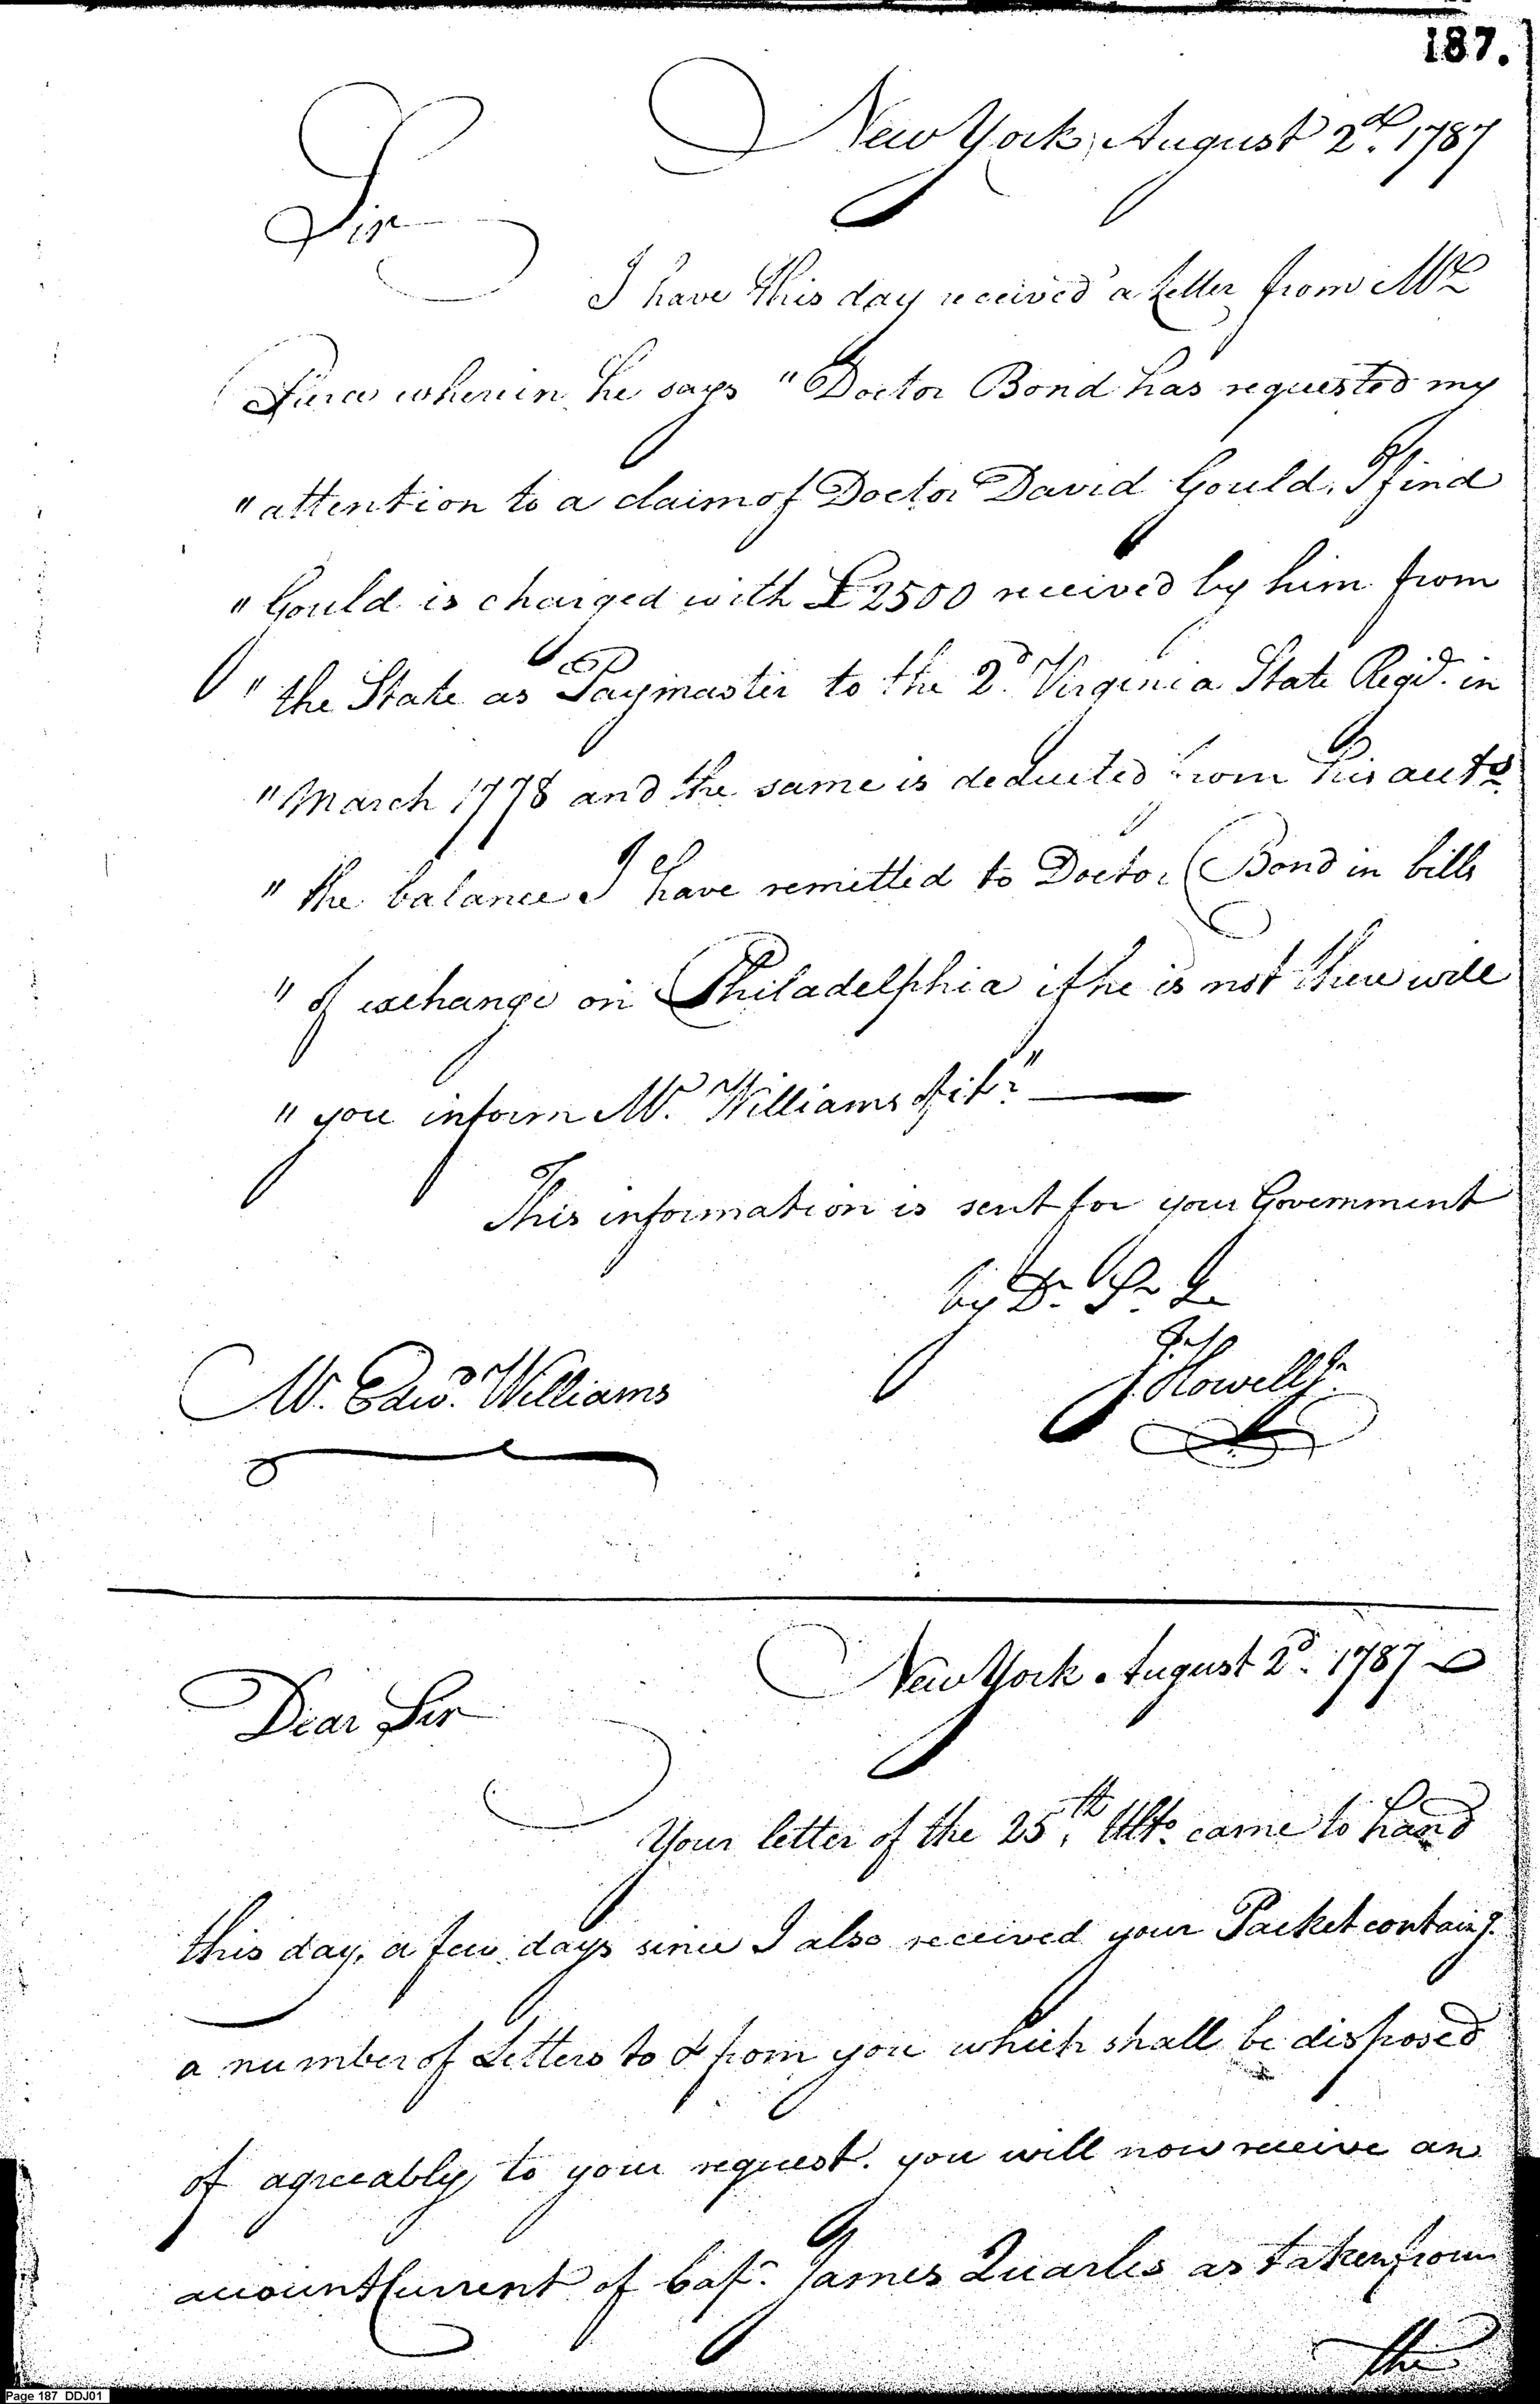 187.
New York, August 2d. 1787
Sir
I have this day received a Letter from Mr
Pierce wherein he says "Doctor Bond has requested my
"attention to a claim of Doctor David Gould, I find
"Gould is charged with £2500 received by him from
"the State as Paymaster to the 2d. Virginia State Regd. in
"March 1778 and the same is deducted from his accts.
"the balance I have remitted to Doctor Bond in bills
"of exchange on Philadelphia if he is not there will
"you inform Mr. Williams of it"
This information is sent for your Government
by Dr. Sr. &
J. Howell Jr.
Mr. Edwd. Williams
New York August 2d. 1787
Dear Sir
Your letter of the 25th. Ulto. came to hand
this day, a few days since I also received your Packet containg.
a number of Letters to & from you which shall be disposed
of agreeably to your request. you will now receive an
account Current of Capt. James Quarles as taken from
the
Page 187 DDJ01